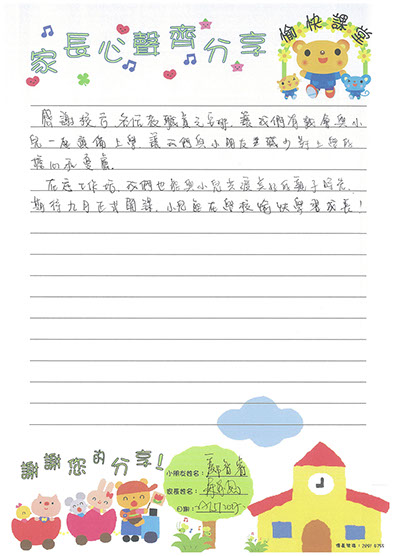 家長心聲齊分享
愉快課堂
感謝校方各位教職員之安排,讓我們有機會與小
兒一起預備上學,讓我們與小朋友都減少對上學的
擔心和憂慮。
在家工作坊,我們也能與小兒共渡美好的親子時光,
期待九月正式開課,小兒能在學校愉快學習成長!
謝謝您的分享!
小朋友姓名:
家長姓名:
日期: